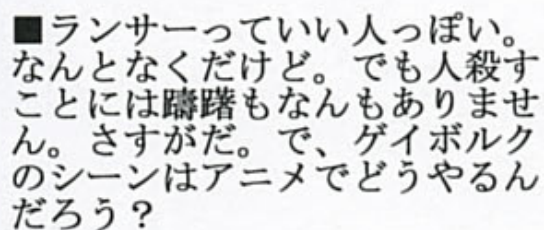 ■ランサーっていい人っぽい。
なんとなくだけど。でも人殺す
ことには躊躇もなんもありませ
ん。さすがだ。で、ゲイボルク
のシーンはアニメでどうやるん
だろう？